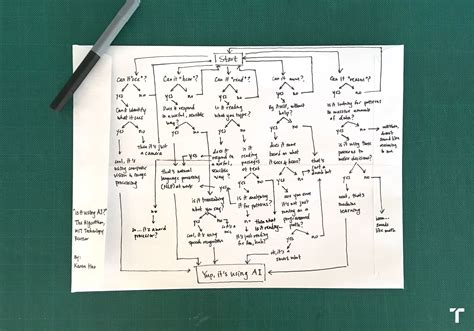 Start
Can it "see"?
Can it "hear"?
Can it "read"?
Can it move?
Can it "reason"?
yes
no
yes
no
yes
no
yes
no
yes
no
Can it identify
what it sees?
Does it respond
in a useful, sensible
way?
Is it reading
what you type?
By itself, without
help?
Is it looking for patterns
in massive amounts
of data?
yes
no
yes
no
yes
no
yes
no
yes
no
then it's just
a camera
cool, it's using
computer
vision & image
processing
that's natural
language processing
(NLP) at work
does it
respond in
a useful,
sensible
way?
is it
reading
passages of
text?
does it
move based
on what
it sees & hears?
that's just
a dumb
bot
is it using those
patterns to
make decisions?
yes
no
yes
no
yes
no
yes
no
is it transcribing
what you
say?
is it analyzing
it for patterns?
are you sure
it's not just
running on a
path?
wait, that's
machine
learning
yes
no
yes
no
yes
no
so... it's a word
processor?
cool, it's using
speech recognition
then what
it's just reading
for fun, huh?
ok, it's a
smart robot
sounds
like math
Yup, it's using AI
is it using AI?
The Algorithm,
MIT Technology
Review
By:
Karen Hao